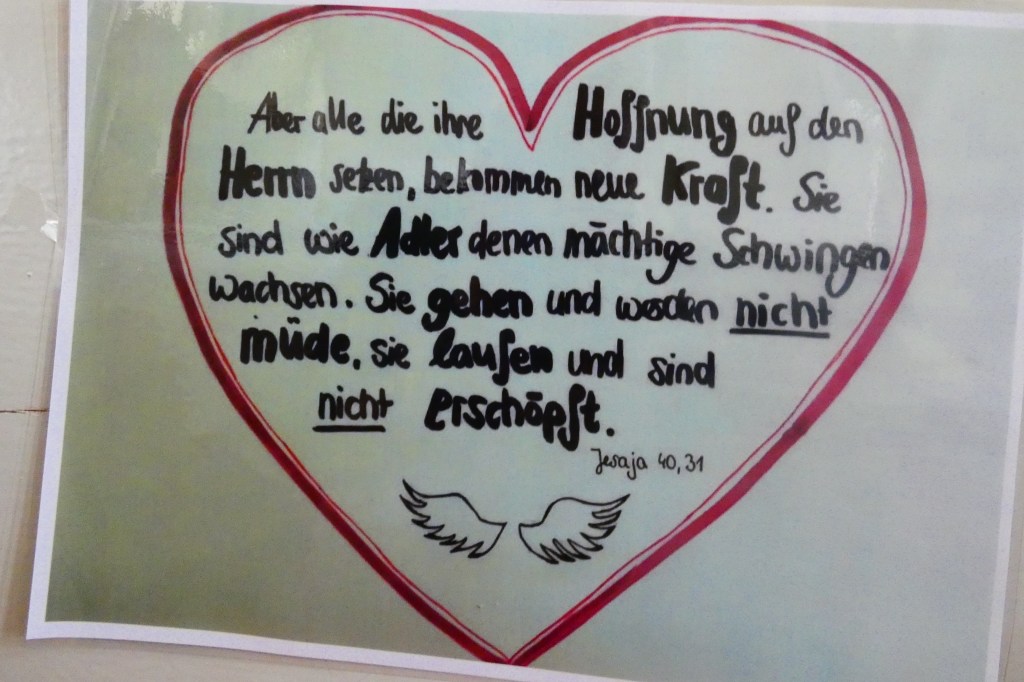 Aber alle die ihre Hoffnung auf den
Herrn setzen, bekommen neue Kraft. Sie
sind wie Adler denen mächtige Schwingen
wachsen. Sie gehen und werden nicht
müde, sie laufen und sind
nicht erschöpft.
Jesaja 40,31